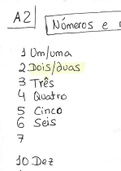 A2
Números e
1 Um/uma
2 Dois/duas
3 Três
4 Quatro
5 Cinco
6 Seis
7
10 Dez